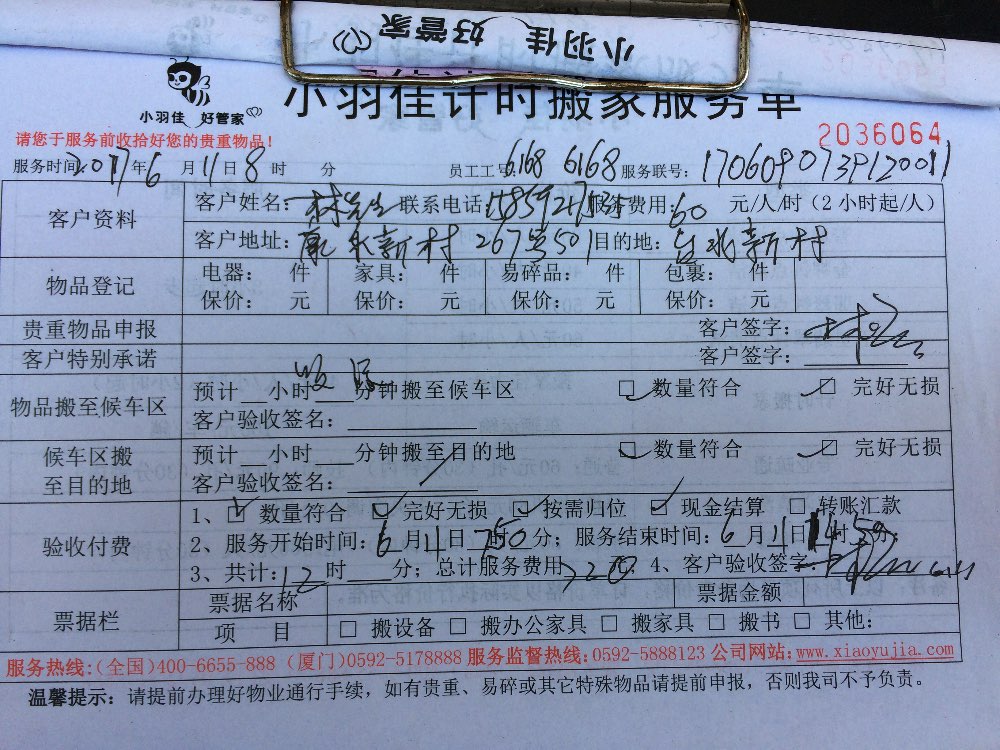 小羽佳 好管家
小羽佳计时搬家服务单
小羽佳 好管家
请您于服务前收拾好您的贵重物品!
2036064
服务时间: 2017年6月11日8时 分 员工工号 6168 6168 服务联号: 1706090739120011
客户资料 客户姓名: 林先生 联系电话: 服务费用: 60 元/人/时 (2小时起/人)
客户地址: 新村267号501 目的地: 新村
物品登记 电器: 件 家具: 件 易碎品: 件 包裹: 件
保价: 元 保价: 元 保价: 元 保价: 元
贵重物品申报 客户签字:
客户特别承诺 客户签字:
物品搬至候车区 预计__小时___分钟搬至候车区 ☑ 数量符合 ☑ 完好无损
客户验收签名:
候车区搬至目的地 预计__小时___分钟搬至目的地 ☑ 数量符合 ☑ 完好无损
客户验收签名:
验收付费 1、☑ 数量符合 ☑ 完好无损 ☑ 按需归位 ☑ 现金结算 □ 转账汇款
2、服务开始时间: 6月11日 750分; 服务结束时间: 6月11日14时 分
3、共计: 12时___分; 总计服务费用 720元 4、客户验收签字:
票据栏 票据名称 票据金额
项 目 □ 搬设备 □ 搬办公家具 □ 搬家具 □ 搬书 □ 其他:
服务热线:(全国)400-6655-888 (厦门)0592-5178888 服务监督热线:0592-5888123 公司网站:www.xiaoyujia.com
温馨提示: 请提前办理好物业通行手续，如有贵重、易碎或其它特殊物品请提前申报，否则我司不予负责。